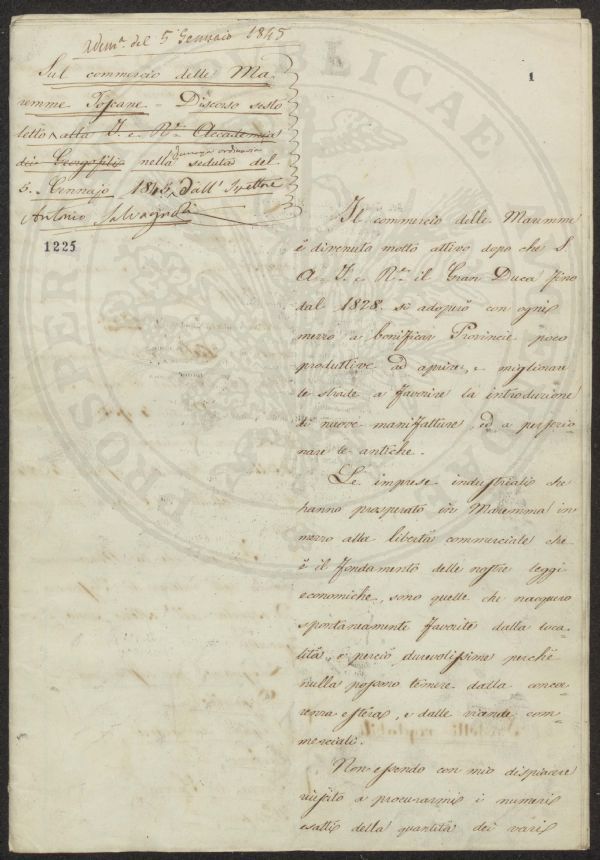 Adunª. del 5 Gennaio 1845
Sul commercio delle Ma
remme Toscane = Discorso sesto
letto alla I. e R. Accademia
dei Georgofili nella seduta del
adunanza ordinaria
5. Gennajo 1845, dall' Ispettore
Antonio Salvagnoli
1225
1
Il commercio delle Maremme
è divenuto molto attivo dopo che S.
A. I. e R. il Gran Duca fino
dal 1828. si adoperò con ogni
mezzo a bonificar Provincie poco
produttive ad aprire, e migliorare
le strade a favorire la introduzione
di nuove manifatture, ed a perfezio=
nare le antiche.
Le imprese industriali che
hanno prosperato in Maremma in
mezzo alla libertà commerciale che
è il fondamento delle nostre leggi
economiche, sono quelle che nacquero
spontaneamente favorite dalla loca=
lità, e perciò durevolissime perchè
nulla possono temere dalla concor=
renza estera, e dalle vicende com=
merciali.
Non essendo con mio dispiacere
riuscito a procurarmi i numeri
esatti della quantità dei varj
PROSPERITATI PUBLICAE AUGENDAE